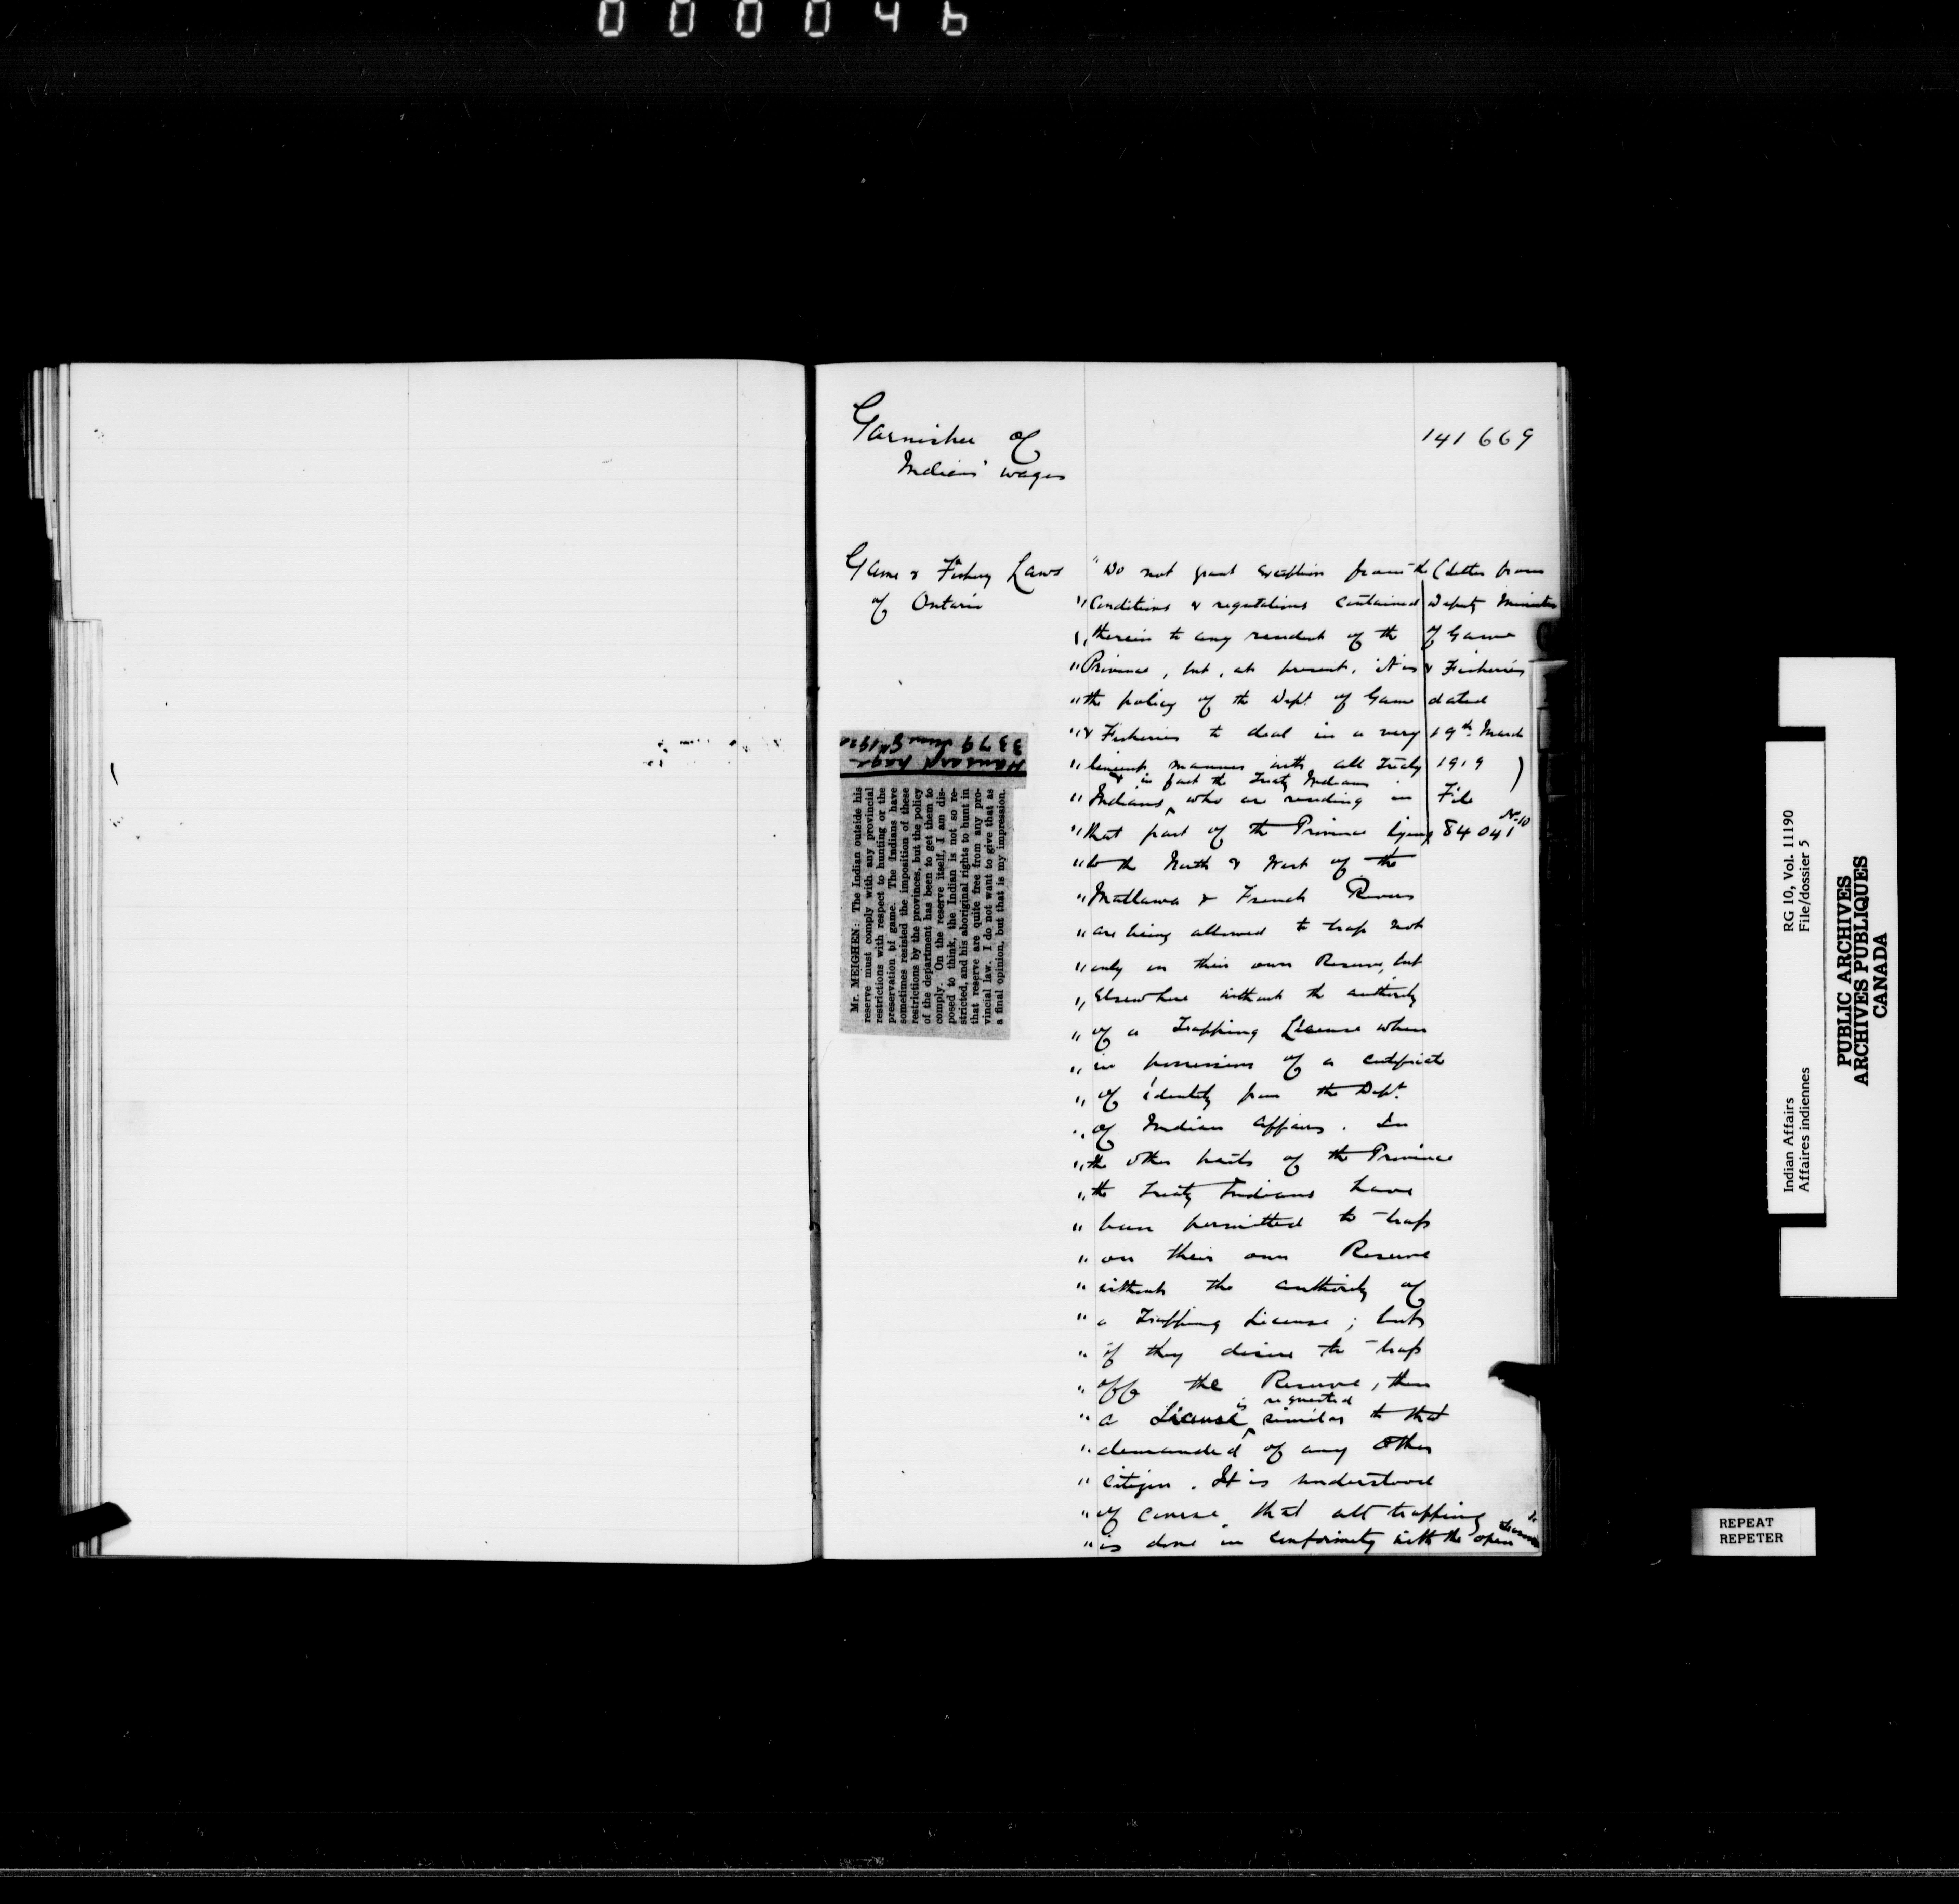 000046
Garnishee of
Indians' wages
141669
Game & Fishery Laws
of Ontario
"Do not grant exception from the
"Conditions & regulations contained
"therein to any resident of the
"Province, but, at present, it is
"the policy of the Dept of Game
"& Fisheries to deal in a very
"lenient manner with all Treaty
& in fact the Treaty Indians
"Indians who are residing in
"that part of the Province lying
"to the North & West of the
"Mattawa & French Rivers
"are being allowed to trap not
"only on their own Reserve, but
"elsewhere without the authority
"of a Trapping License when
"in possession of a certificate
"of identity from the Dept.
"of Indian Affairs. In
"the other parts of the Province
"the Treaty Indians have
"been permitted to trap
"on their own Reserve
"without the authority of
"a Trapping License; but
"if they desire to trap
"off the Reserve, then
is requested
"a License similar to that
"demanded of any other
"citizen. It is understood
"of course that all trapping
"is done in conformity with the open
(Letter from
Deputy Minister
of Game
& Fisheries
dated
19th March
1919)
File
84041
No. 10
Hansard page
3379 June 8th 1920
Mr. MEIGHEN: The Indian outside his
reserve must comply with any provincial
restrictions with respect to hunting or the
preservation of game. The Indians have
sometimes resisted the imposition of these
restrictions by the provinces, but the policy
of the department has been to get them to
comply. On the reserve itself, I am dis-
posed to think, the Indian is not so re-
stricted, and his aboriginal rights to hunt in
that reserve are quite free from any pro-
vincial law. I do not want to give that as
a final opinion, but that is my impression.
Indian Affairs RG 10, Vol. 11190
Affaires indiennes File/dossier 5
PUBLIC ARCHIVES
ARCHIVES PUBLIQUES
CANADA
REPEAT
REPETER